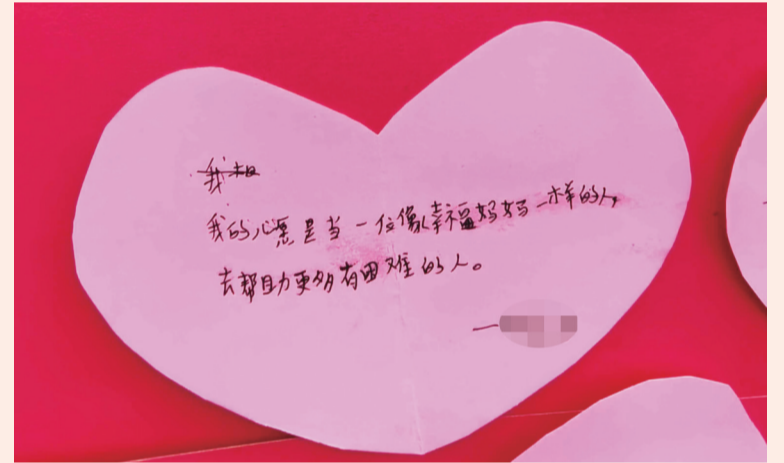 我想
我的心愿是当一位像幸福妈妈一样的人,
去帮助更多有困难的人。